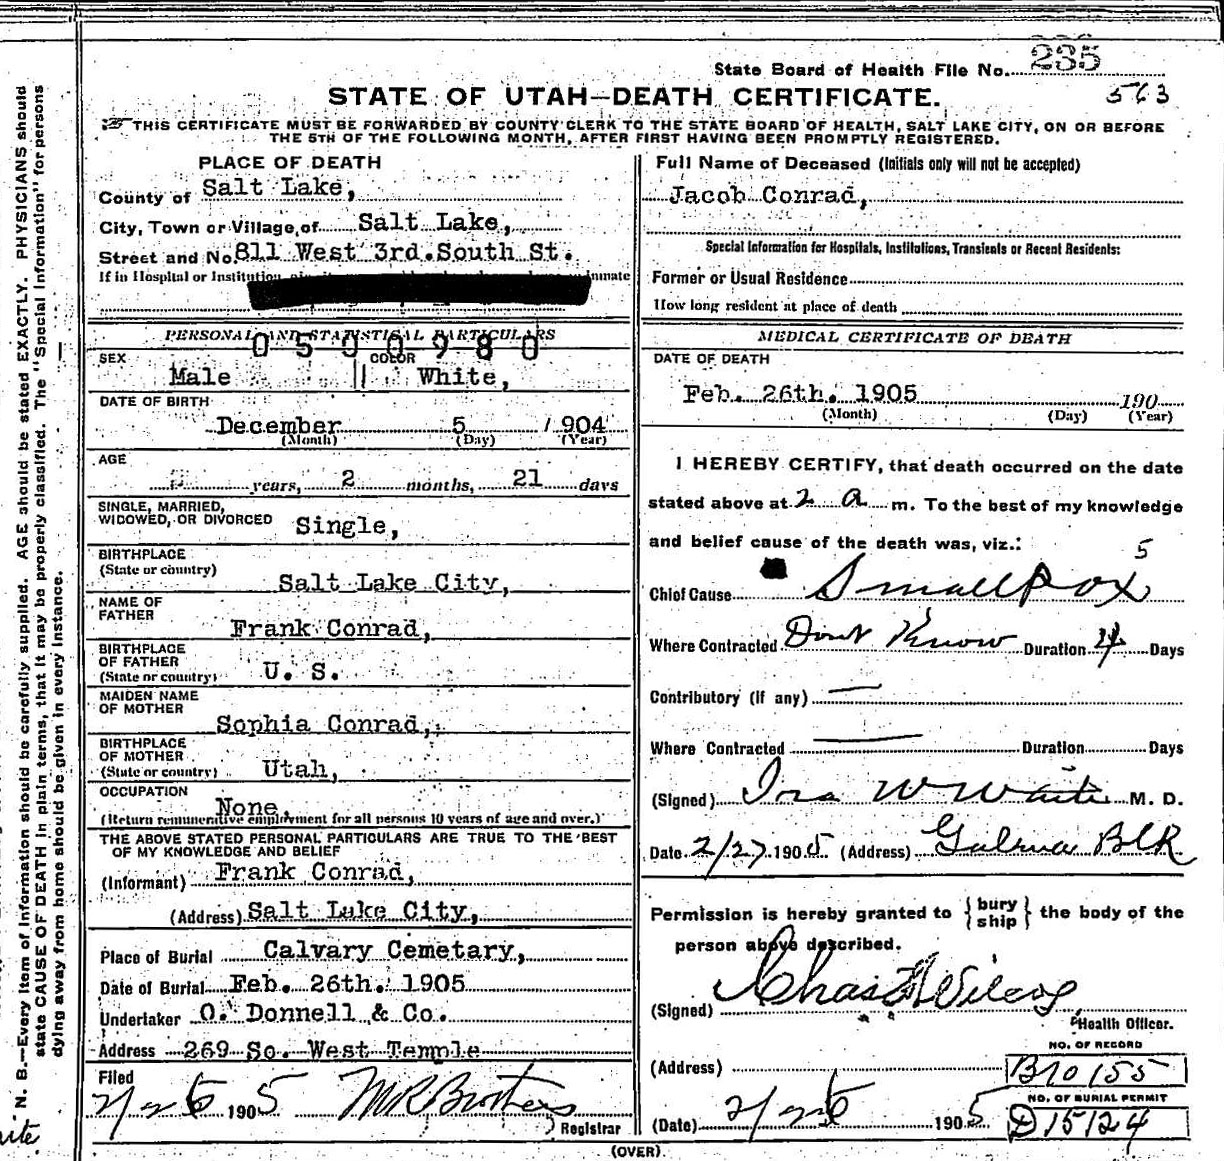 State Board of Health File No. 235
563
STATE OF UTAH—DEATH CERTIFICATE.
THIS CERTIFICATE MUST BE FORWARDED BY COUNTY CLERK TO THE STATE BOARD OF HEALTH, SALT LAKE CITY, ON OR BEFORE
THE 5TH OF THE FOLLOWING MONTH, AFTER FIRST HAVING BEEN PROMPTLY REGISTERED.
PLACE OF DEATH
County of Salt Lake,
City, Town or Village, of Salt Lake,
Street and No. 811 West 3rd. South St.
If in Hospital or Institution
PERSONAL AND STATISTICAL PARTICULARS
0500980
SEX COLOR
Male White,
DATE OF BIRTH
December 5 1904
(Month) (Day) (Year)
AGE
years, 2 months, 21 days
SINGLE, MARRIED,
WIDOWED, OR DIVORCED Single,
BIRTHPLACE
(State or country) Salt Lake City,
NAME OF
FATHER Frank Conrad,
BIRTHPLACE
OF FATHER
(State or country) U. S.
MAIDEN NAME
OF MOTHER
Sophia Conrad,
BIRTHPLACE
OF MOTHER
(State or country) Utah,
OCCUPATION
None,
(Return remunerative employment for all persons 10 years of age and over.)
THE ABOVE STATED PERSONAL PARTICULARS ARE TRUE TO THE BEST
OF MY KNOWLEDGE AND BELIEF
(Informant) Frank Conrad,
(Address) Salt Lake City,
Place of Burial Calvary Cemetary,
Date of Burial Feb. 26th. 1905
Undertaker O. Donnell & Co.
Address 269 So. West Temple
Filed
2/26 1905
Registrar
Full Name of Deceased (Initials only will not be accepted)
Jacob Conrad,
Special Information for Hospitals, Institutions, Transients or Recent Residents:
Former or Usual Residence
How long resident at place of death
MEDICAL CERTIFICATE OF DEATH
DATE OF DEATH
Feb. 26th. 1905 190
(Month) (Day) (Year)
I HEREBY CERTIFY, that death occurred on the date
stated above at 2 a m. To the best of my knowledge
and belief cause of the death was, viz.:
5
Chief Cause Smallpox
Where Contracted Dont Know Duration 4 Days
Contributory (if any) —
Where Contracted — Duration Days
(Signed) Ira W Waite M. D.
Date 2/27 1905 (Address) Galena Blk
Permission is hereby granted to {bury ship} the body of the
person above described.
(Signed) Chas Wilcox
Health Officer.
NO. OF RECORD
(Address) B10155
NO. OF BURIAL PERMIT
(Date) 2/26 1905 D15124
(OVER)
N. B.—Every item of information should be carefully supplied. AGE should be stated EXACTLY. PHYSICIANS should
state CAUSE OF DEATH in plain terms, that it may be properly classified. The "Special Information" for persons
dying away from home should be given in every instance.